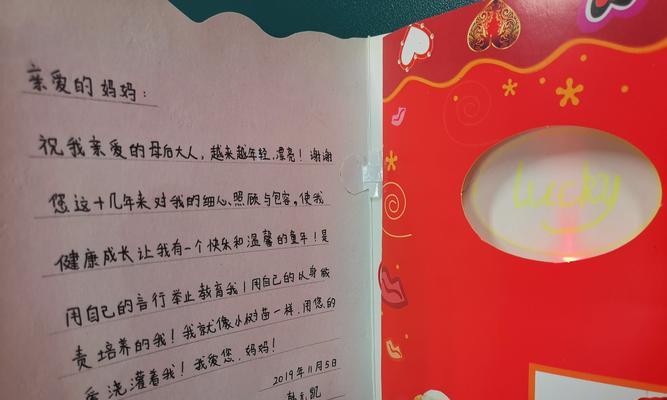 亲爱的妈妈：
祝我亲爱的母后大人，越来越年轻、漂亮！谢谢
您这十几年来对我的细心、照顾与包容。使我
健康成长让我有一个快乐和温馨的童年！是
用自己的言行举止教育我！用自己的以身做
责培养的我！我就像小树苗一样，用您的
爱浇灌着我！我爱您，妈妈！
2019年11月5日
凯
lucky